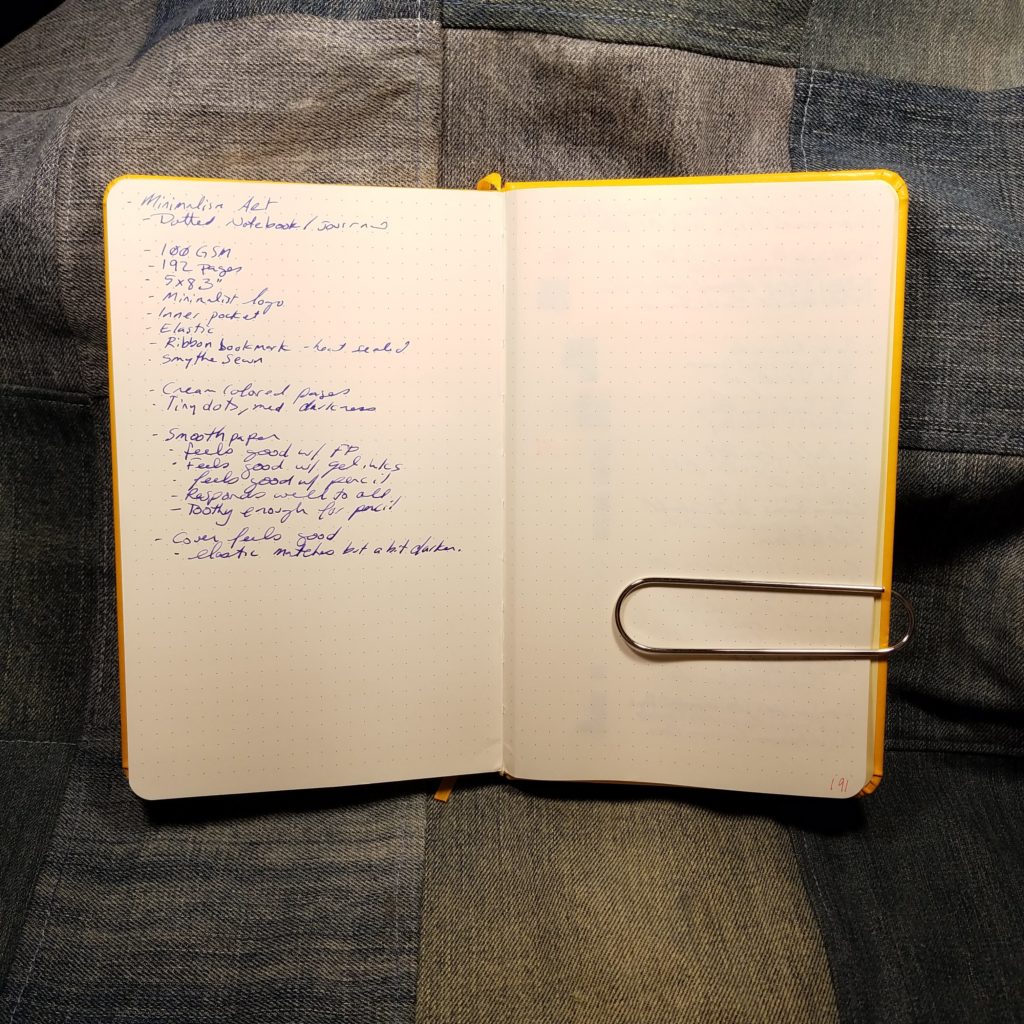 - Minimalism Art
- Dotted Notebook/Journal
- 100 GSM
- 192 pages
- 5x8.3"
- Minimalist logo
- Inner pocket
- Elastic
- Ribbon bookmark - heat sealed
- Smythe Sewn
- Cream colored pages
- Tiny dots, med darkness
- Smooth paper
- feels good w/ FP
- Feels good w/ gel inks
- feels good w/ pencil
- Responds well to all
- Toothy enough for pencil
- Cover feels good
- elastic matches but a bit darker.
191